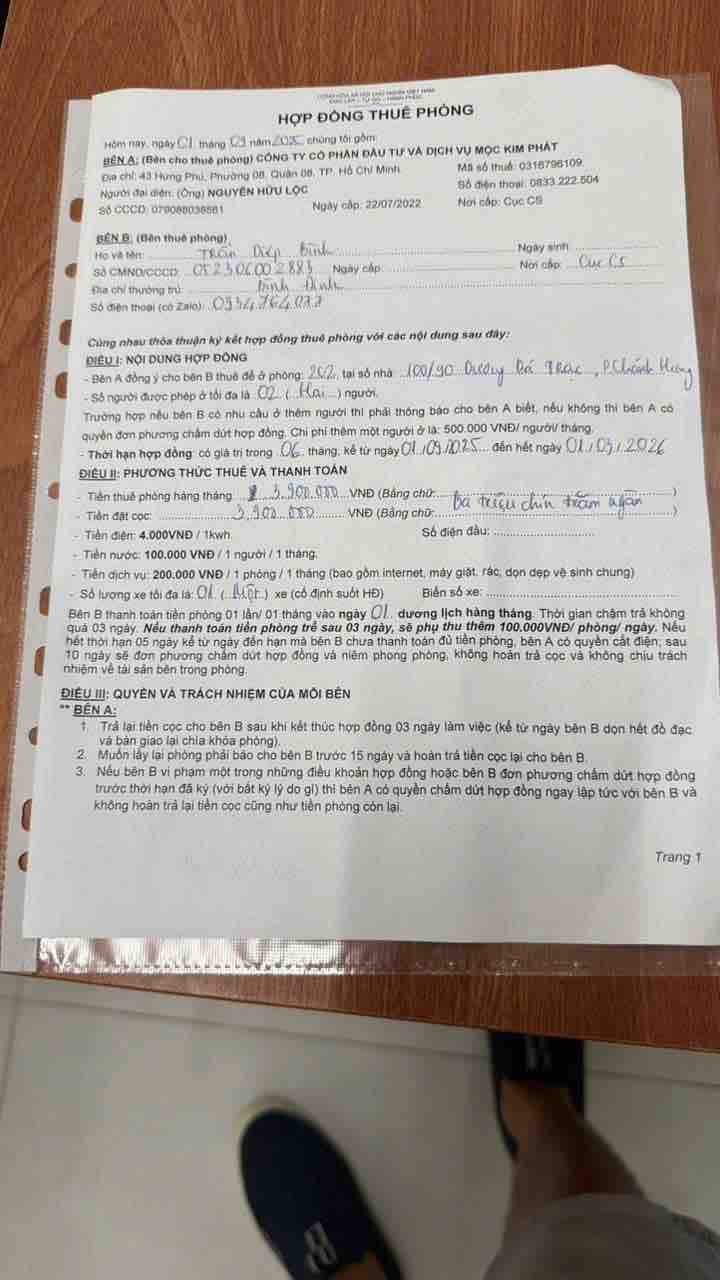 CỘNG HÒA XÃ HỘI CHỦ NGHĨA VIỆT NAM
ĐỘC LẬP - TỰ DO - HẠNH PHÚC
HỢP ĐỒNG THUÊ PHÒNG
Hôm nay, ngày 01 tháng 09 năm 2025 chúng tôi gồm:
BÊN A: (Bên cho thuê phòng) CÔNG TY CỔ PHẦN ĐẦU TƯ VÀ DỊCH VỤ MỘC KIM PHÁT
Địa chỉ: 43 Hưng Phú, Phường 08, Quận 08, TP. Hồ Chí Minh Mã số thuế: 0316796109
Người đại diện: (Ông) NGUYỄN HỮU LỘC Số điện thoại: 0833.222.504
Số CCCD: 079088038561 Ngày cấp: 22/07/2022 Nơi cấp: Cục CS
BÊN B: (Bên thuê phòng)
Họ và tên: Trần Diệp Bình Ngày sinh:
Số CMND/CCCD: 052306002883 Ngày cấp: Nơi cấp: Cục CS
Địa chỉ thường trú: Bình Định
Số điện thoại (có Zalo): 0934764077
Cùng nhau thỏa thuận ký kết hợp đồng thuê phòng với các nội dung sau đây:
ĐIỀU I: NỘI DUNG HỢP ĐỒNG
- Bên A đồng ý cho bên B thuê để ở phòng: 202, tại số nhà: 100/90 Dương Bá Trạc, P Chánh Hưng
- Số người được phép ở tối đa là 02 (Hai) người.
Trường hợp nếu bên B có nhu cầu ở thêm người thì phải thông báo cho bên A biết, nếu không thì bên A có
quyền đơn phương chấm dứt hợp đồng. Chi phí thêm một người ở là: 500.000 VNĐ/ người/ tháng.
- Thời hạn hợp đồng: có giá trị trong 06 tháng, kể từ ngày 01/09/2025 đến hết ngày 01/03/2026
ĐIỀU II: PHƯƠNG THỨC THUÊ VÀ THANH TOÁN
- Tiền thuê phòng hàng tháng: 3.900.000 VNĐ (Bằng chữ: )
- Tiền đặt cọc: 3.900.000 VNĐ (Bằng chữ: ba triệu chín trăm ngàn )
- Tiền điện: 4.000VNĐ / 1kwh. Số điện đầu:
- Tiền nước: 100.000 VNĐ / 1 người / 1 tháng.
- Tiền dịch vụ: 200.000 VNĐ / 1 phòng / 1 tháng (bao gồm internet, máy giặt, rác, dọn dẹp vệ sinh chung)
- Số lượng xe tối đa là: 01 (Một) xe (cố định suốt HĐ) Biển số xe:
Bên B thanh toán tiền phòng 01 lần/ 01 tháng vào ngày 01 dương lịch hàng tháng. Thời gian chậm trả không
quá 03 ngày. Nếu thanh toán tiền phòng trễ sau 03 ngày, sẽ phụ thu thêm 100.000VNĐ/ phòng/ ngày. Nếu
hết thời hạn 05 ngày kể từ ngày đến hạn mà bên B chưa thanh toán đủ tiền phòng, bên A có quyền cắt điện; sau
10 ngày sẽ đơn phương chấm dứt hợp đồng và niêm phong phòng, không hoàn trả cọc và không chịu trách
nhiệm về tài sản bên trong phòng.
ĐIỀU III: QUYỀN VÀ TRÁCH NHIỆM CỦA MỖI BÊN
** BÊN A:
1. Trả lại tiền cọc cho bên B sau khi kết thúc hợp đồng 03 ngày làm việc (kể từ ngày bên B dọn hết đồ đạc
và bàn giao lại chìa khóa phòng).
2. Muốn lấy lại phòng phải báo cho bên B trước 15 ngày và hoàn trả tiền cọc lại cho bên B.
3. Nếu bên B vi phạm một trong những điều khoản hợp đồng hoặc bên B đơn phương chấm dứt hợp đồng
trước thời hạn đã ký (với bất kỳ lý do gì) thì bên A có quyền chấm dứt hợp đồng ngay lập tức với bên B và
không hoàn trả lại tiền cọc cũng như tiền phòng còn lại.
Trang 1